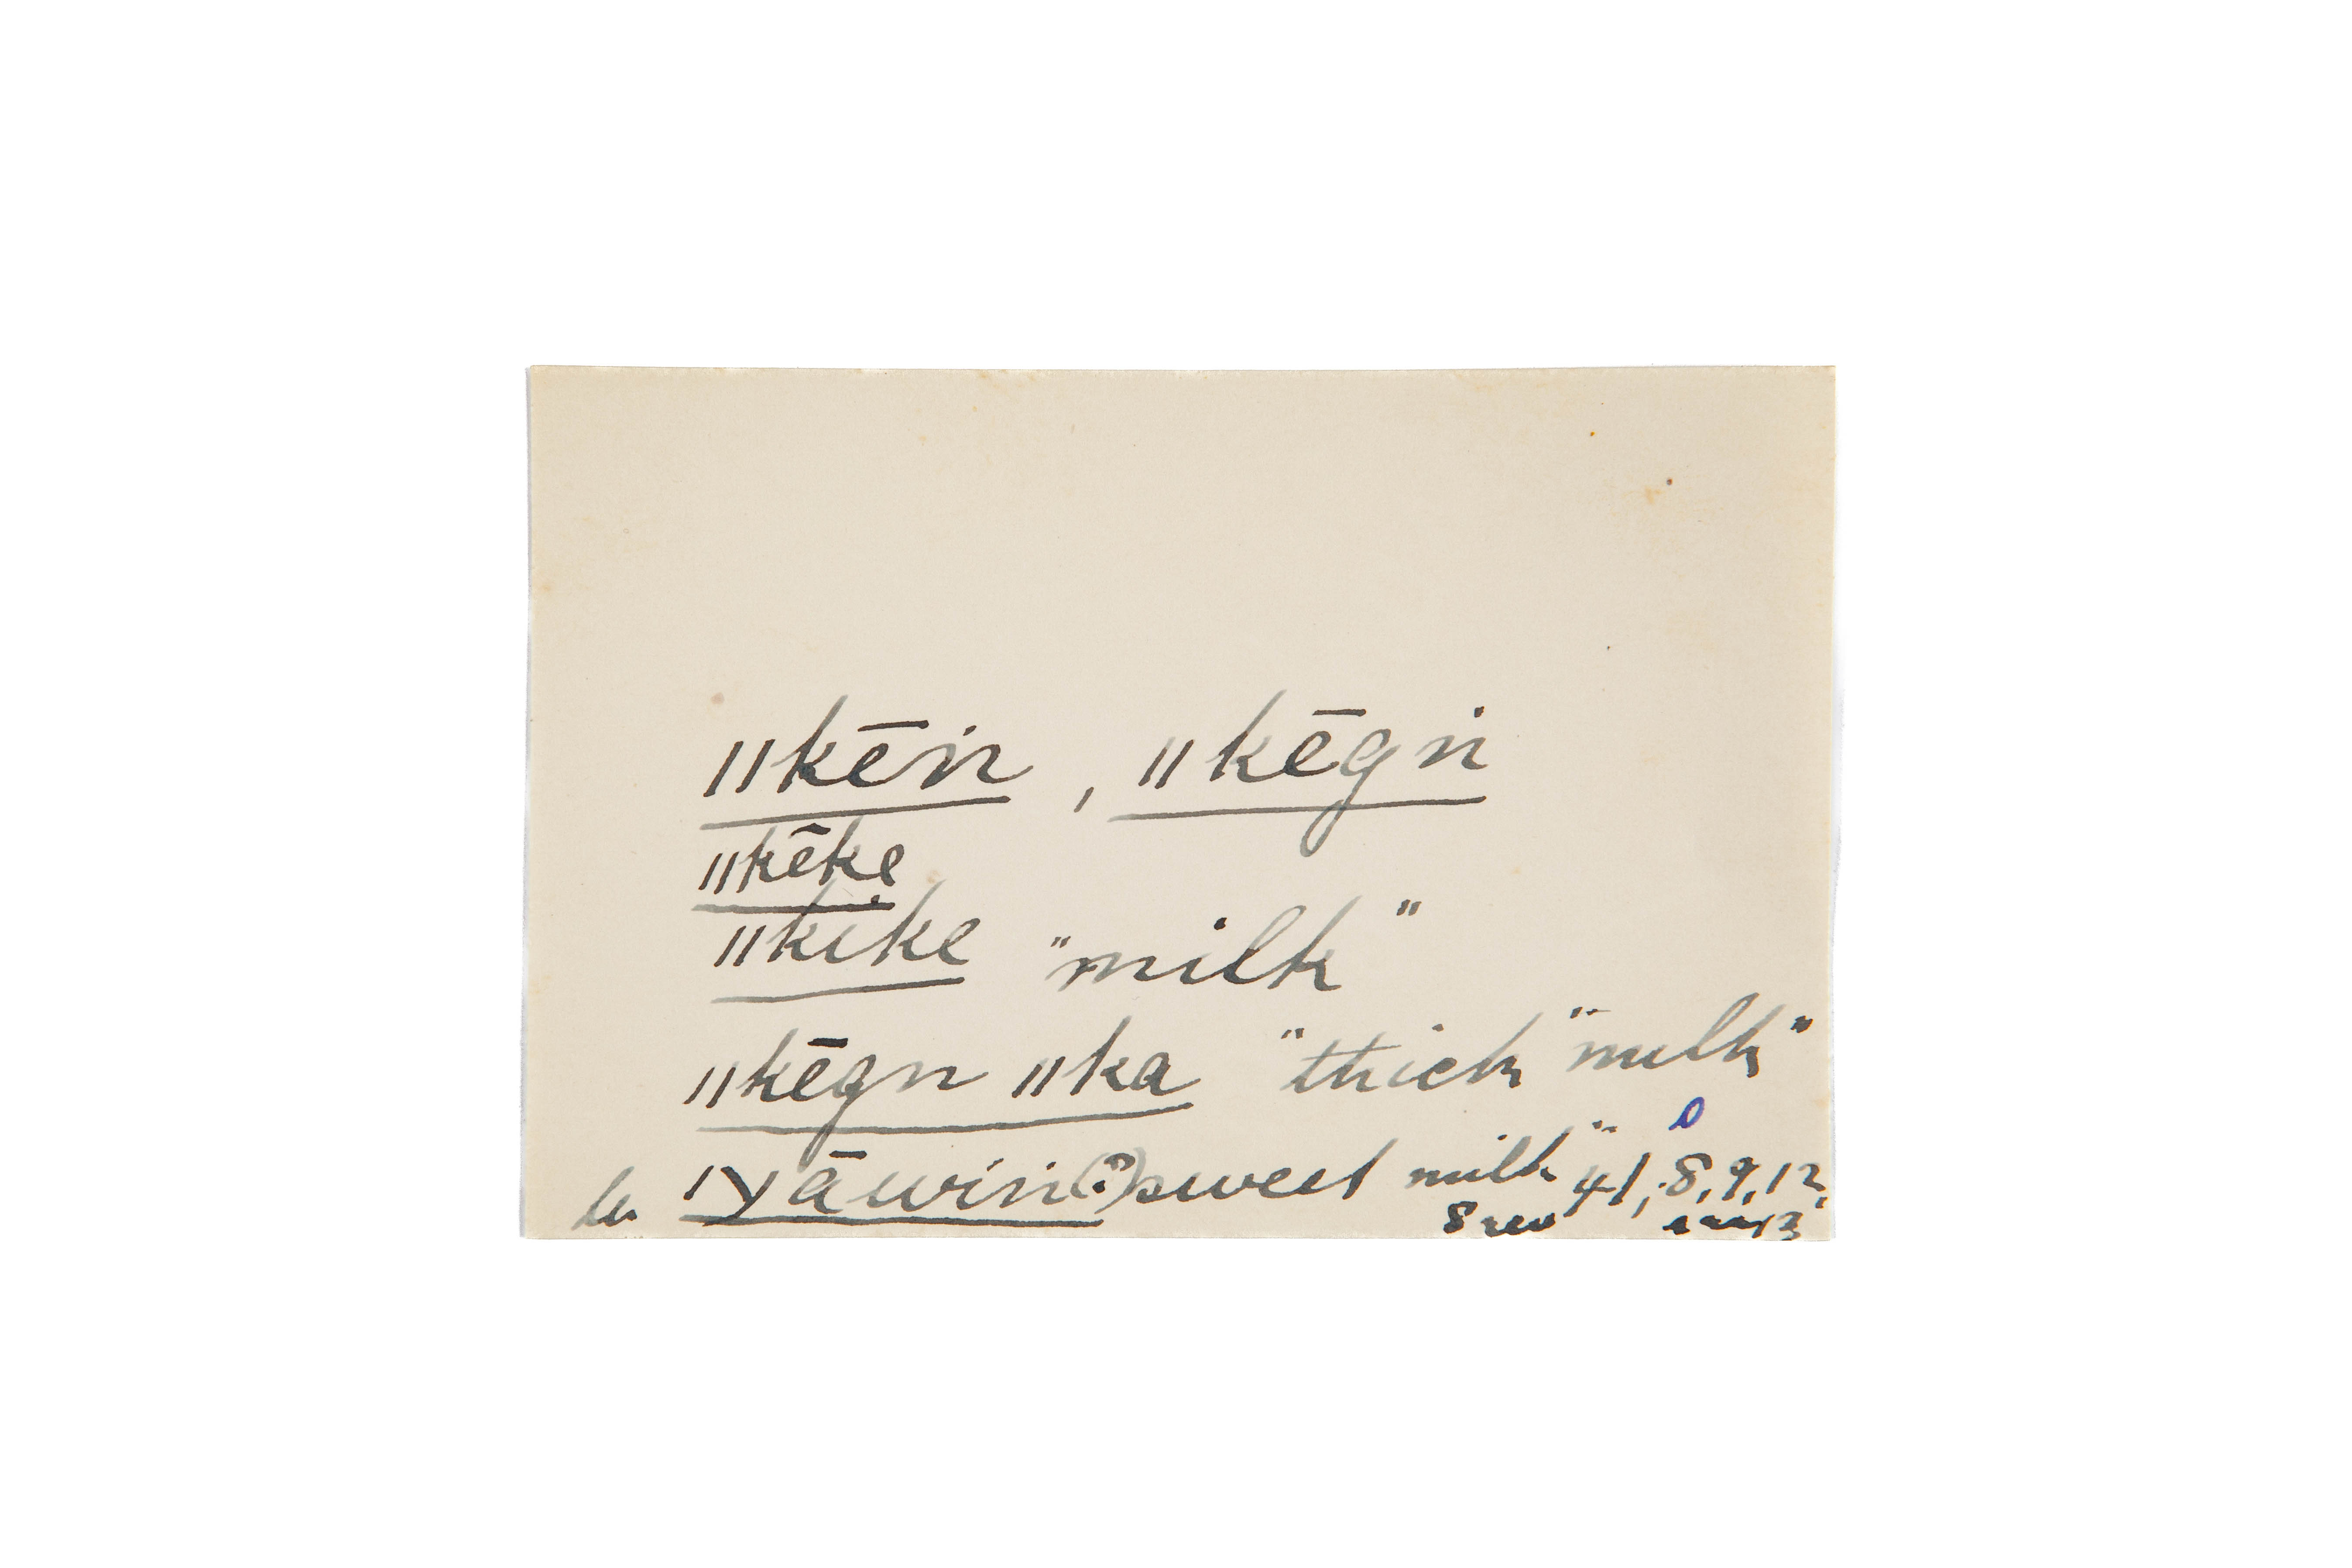 ǁkēṅ , ǁkēgṅ
ǁkēke
ǁkike "milk"
ǁkēgn ǁka "thick" "milk"
ǀχāwin(?) sweet milk" 41; 8, 9, 12,
8 rev